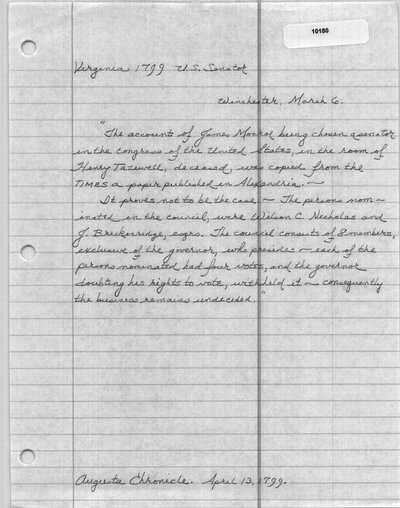 10180
Virginia 1799 U.S. Senator
Winchester, March 6.
"The account of James Monroe being chosen a senator
in the congress of the United States, in the room of
Henry Tazewell, deceased, was copied from the
TIMES a paper published in Alexandria. —
It proves not to be the case — The persons nom-
inated in the council, were Wilson C. Nicholas and
J. Breckenridge, esqrs. The council consists of 8 members,
exclusive of the governor, who presides — each of the
persons nominated had four votes, and the governor
doubting his rights to vote, withheld it — consequently
the business remains undecided."
Augusta Chronicle. April 13, 1799.